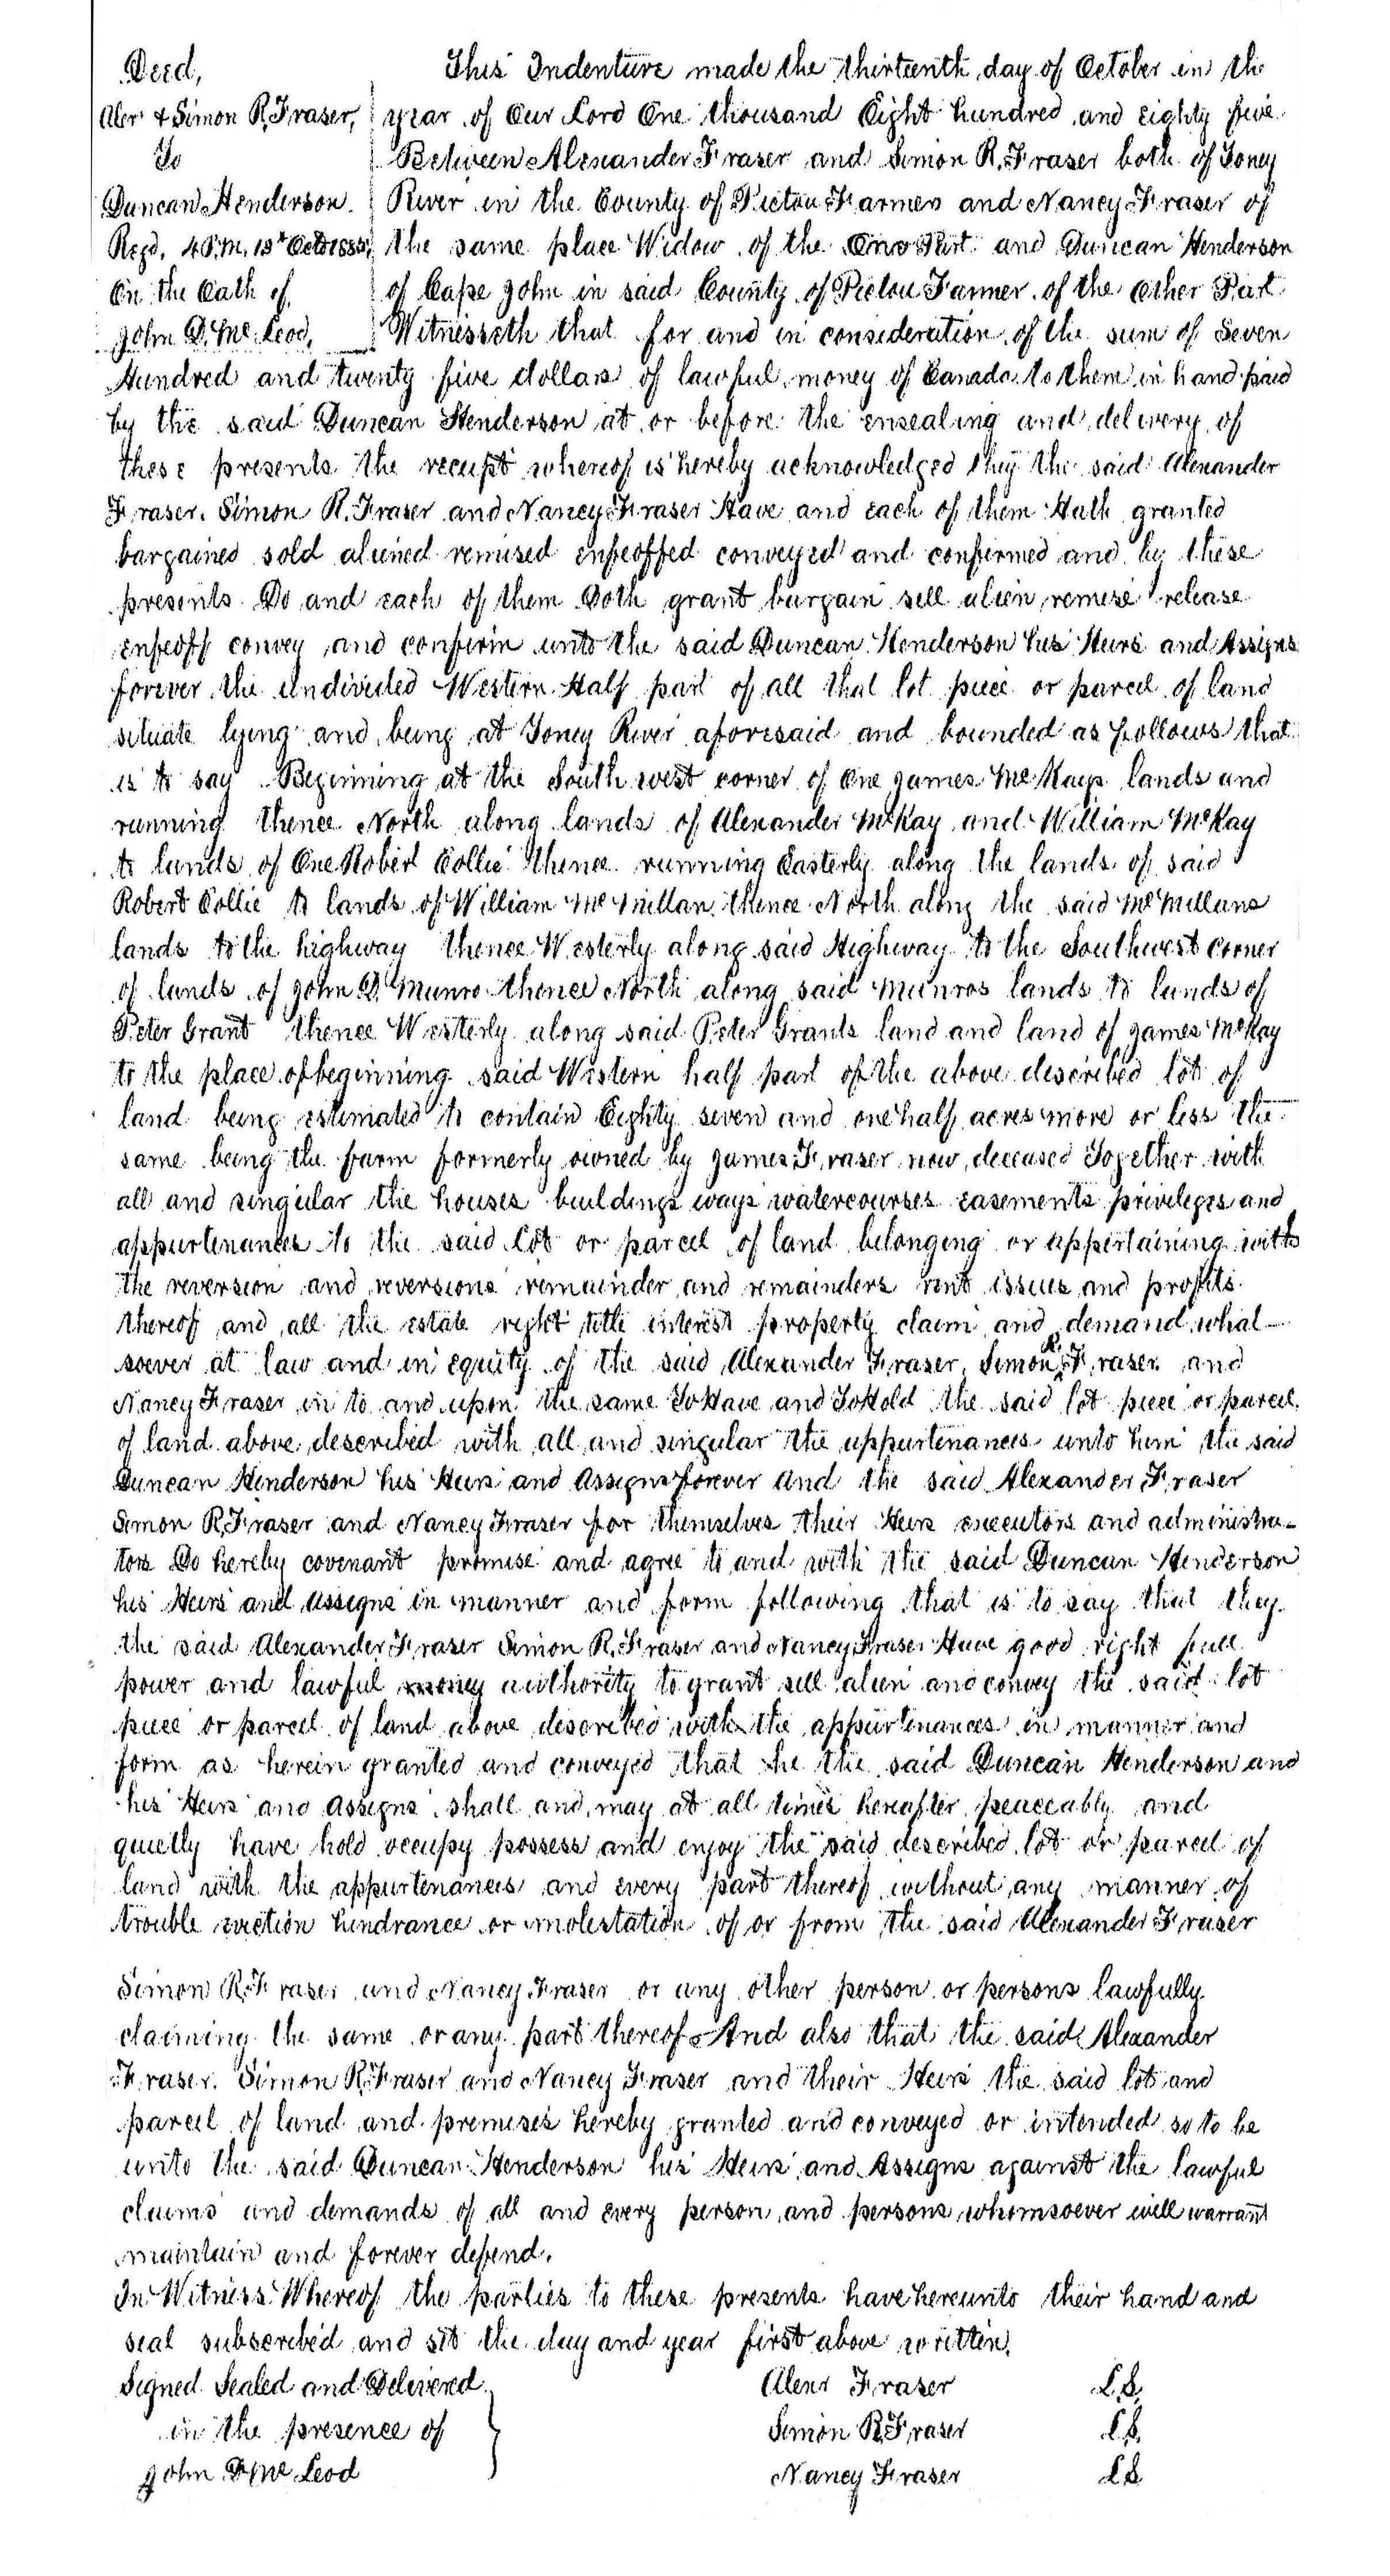 Deed,
Alexr & Simon R. Fraser,
To
Duncan Henderson.
Regd. 4 P.m. 13th Octo 1885,
On the Oath of
John D. Mc Leod,
This Indenture made the thirteenth day of October in the
year of Our Lord One thousand Eight hundred and Eighty five
Between Alexander Fraser and Simon R. Fraser both of Toney
River in the County of Pictou Farmers and Nancy Fraser of
the same place Widow of the One Part and Duncan Henderson
of Cape John in said County of Pictou Farmer of the Other Part
Witnesseth that for and in consideration of the sum of Seven
Hundred and twenty five dollars of lawful money of Canada to them in hand paid
by the said Duncan Henderson at or before the ensealing and delivery of
these presents the receipt whereof is hereby acknowledged they the said Alexander
Fraser. Simon R. Fraser and Nancy Fraser Have and each of them Hath granted
bargained sold aliened remised enfeoffed conveyed and confirmed and by these
presents Do and each of them Doth grant bargain sell alien remise release
enfeoff convey and confirm unto the said Duncan Henderson his Heirs and Assigns
forever the Undivided Western Half part of all that lot piece or parcel of land
situate lying and being at Toney River aforesaid and bounded as follows that
is to say Beginning at the South west corner of One James McKays lands and
running thence North along lands of Alexander McKay and William McKay
to lands of One Robert Collie thence running Easterly along the lands of said
Robert Collie to lands of William Mc Millan thence North along the said McMillans
lands to the highway thence Westerly along said Highway to the Southwest corner
of lands of John D. Munro thence North along said Munros lands to lands of
Peter Grant thence Westerly along said Peter Grants land and land of James McKay
to the place of beginning said Western half part of the above described lot of
land being estimated to contain Eighty seven and one half acres more or less the
same being the farm formerly owned by James Fraser now deceased Together with
all and singular the houses buildings ways watercourses easements privileges and
appurtenances to the said lot or parcel of land belonging or appertaining with
the reversion and reversions remainder and remainders rent issues and profits
thereof and all the estate right title interest property claim and demand what-
soever at law and in equity of the said Alexander Fraser, Simon R. Fraser and
Nancy Fraser in to and upon the same To Have and To Hold the said lot piece or parcel
of land above described with all and singular the appurtenances unto him the said
Duncan Henderson his Heirs and Assigns forever And the said Alexander Fraser
Simon R. Fraser and Nancy Fraser for themselves their Heirs executors and administra-
tors Do hereby covenant promise and agree to and with the said Duncan Henderson
his Heirs and Assigns in manner and form following that is to say that they
the said Alexander Fraser Simon R. Fraser and Nancy Fraser Have good right full
power and lawful money authority to grant sell alien and convey the said lot
piece or parcel of land above described with the appurtenances in manner and
form as herein granted and conveyed that he the said Duncan Henderson and
his Heirs and Assigns shall and may at all times hereafter peaceably and
quietly have hold occupy possess and enjoy the said described lot or parcel of
land with the appurtenances and every part thereof without any manner of
trouble eviction hindrance or molestation of or from the said Alexander Fraser
Simon R. Fraser and Nancy Fraser or any other person or persons lawfully
claiming the same or any part thereof And also that the said Alexander
Fraser. Simon R. Fraser and Nancy Fraser and their Heirs the said lot and
parcel of land and premises hereby granted and conveyed or intended so to be
unto the said Duncan Henderson his Heirs and Assigns against the lawful
claims and demands of all and every person and persons whomsoever will warrant
maintain and forever defend.
In Witness Whereof the parties to these presents have hereunto their hand and
seal subscribed and set the day and year first above written.
Signed Sealed and Delivered
in the presence of
John D Mc Leod
Alexr Fraser L.S.
Simon R. Fraser L.S.
Nancy Fraser L.S.